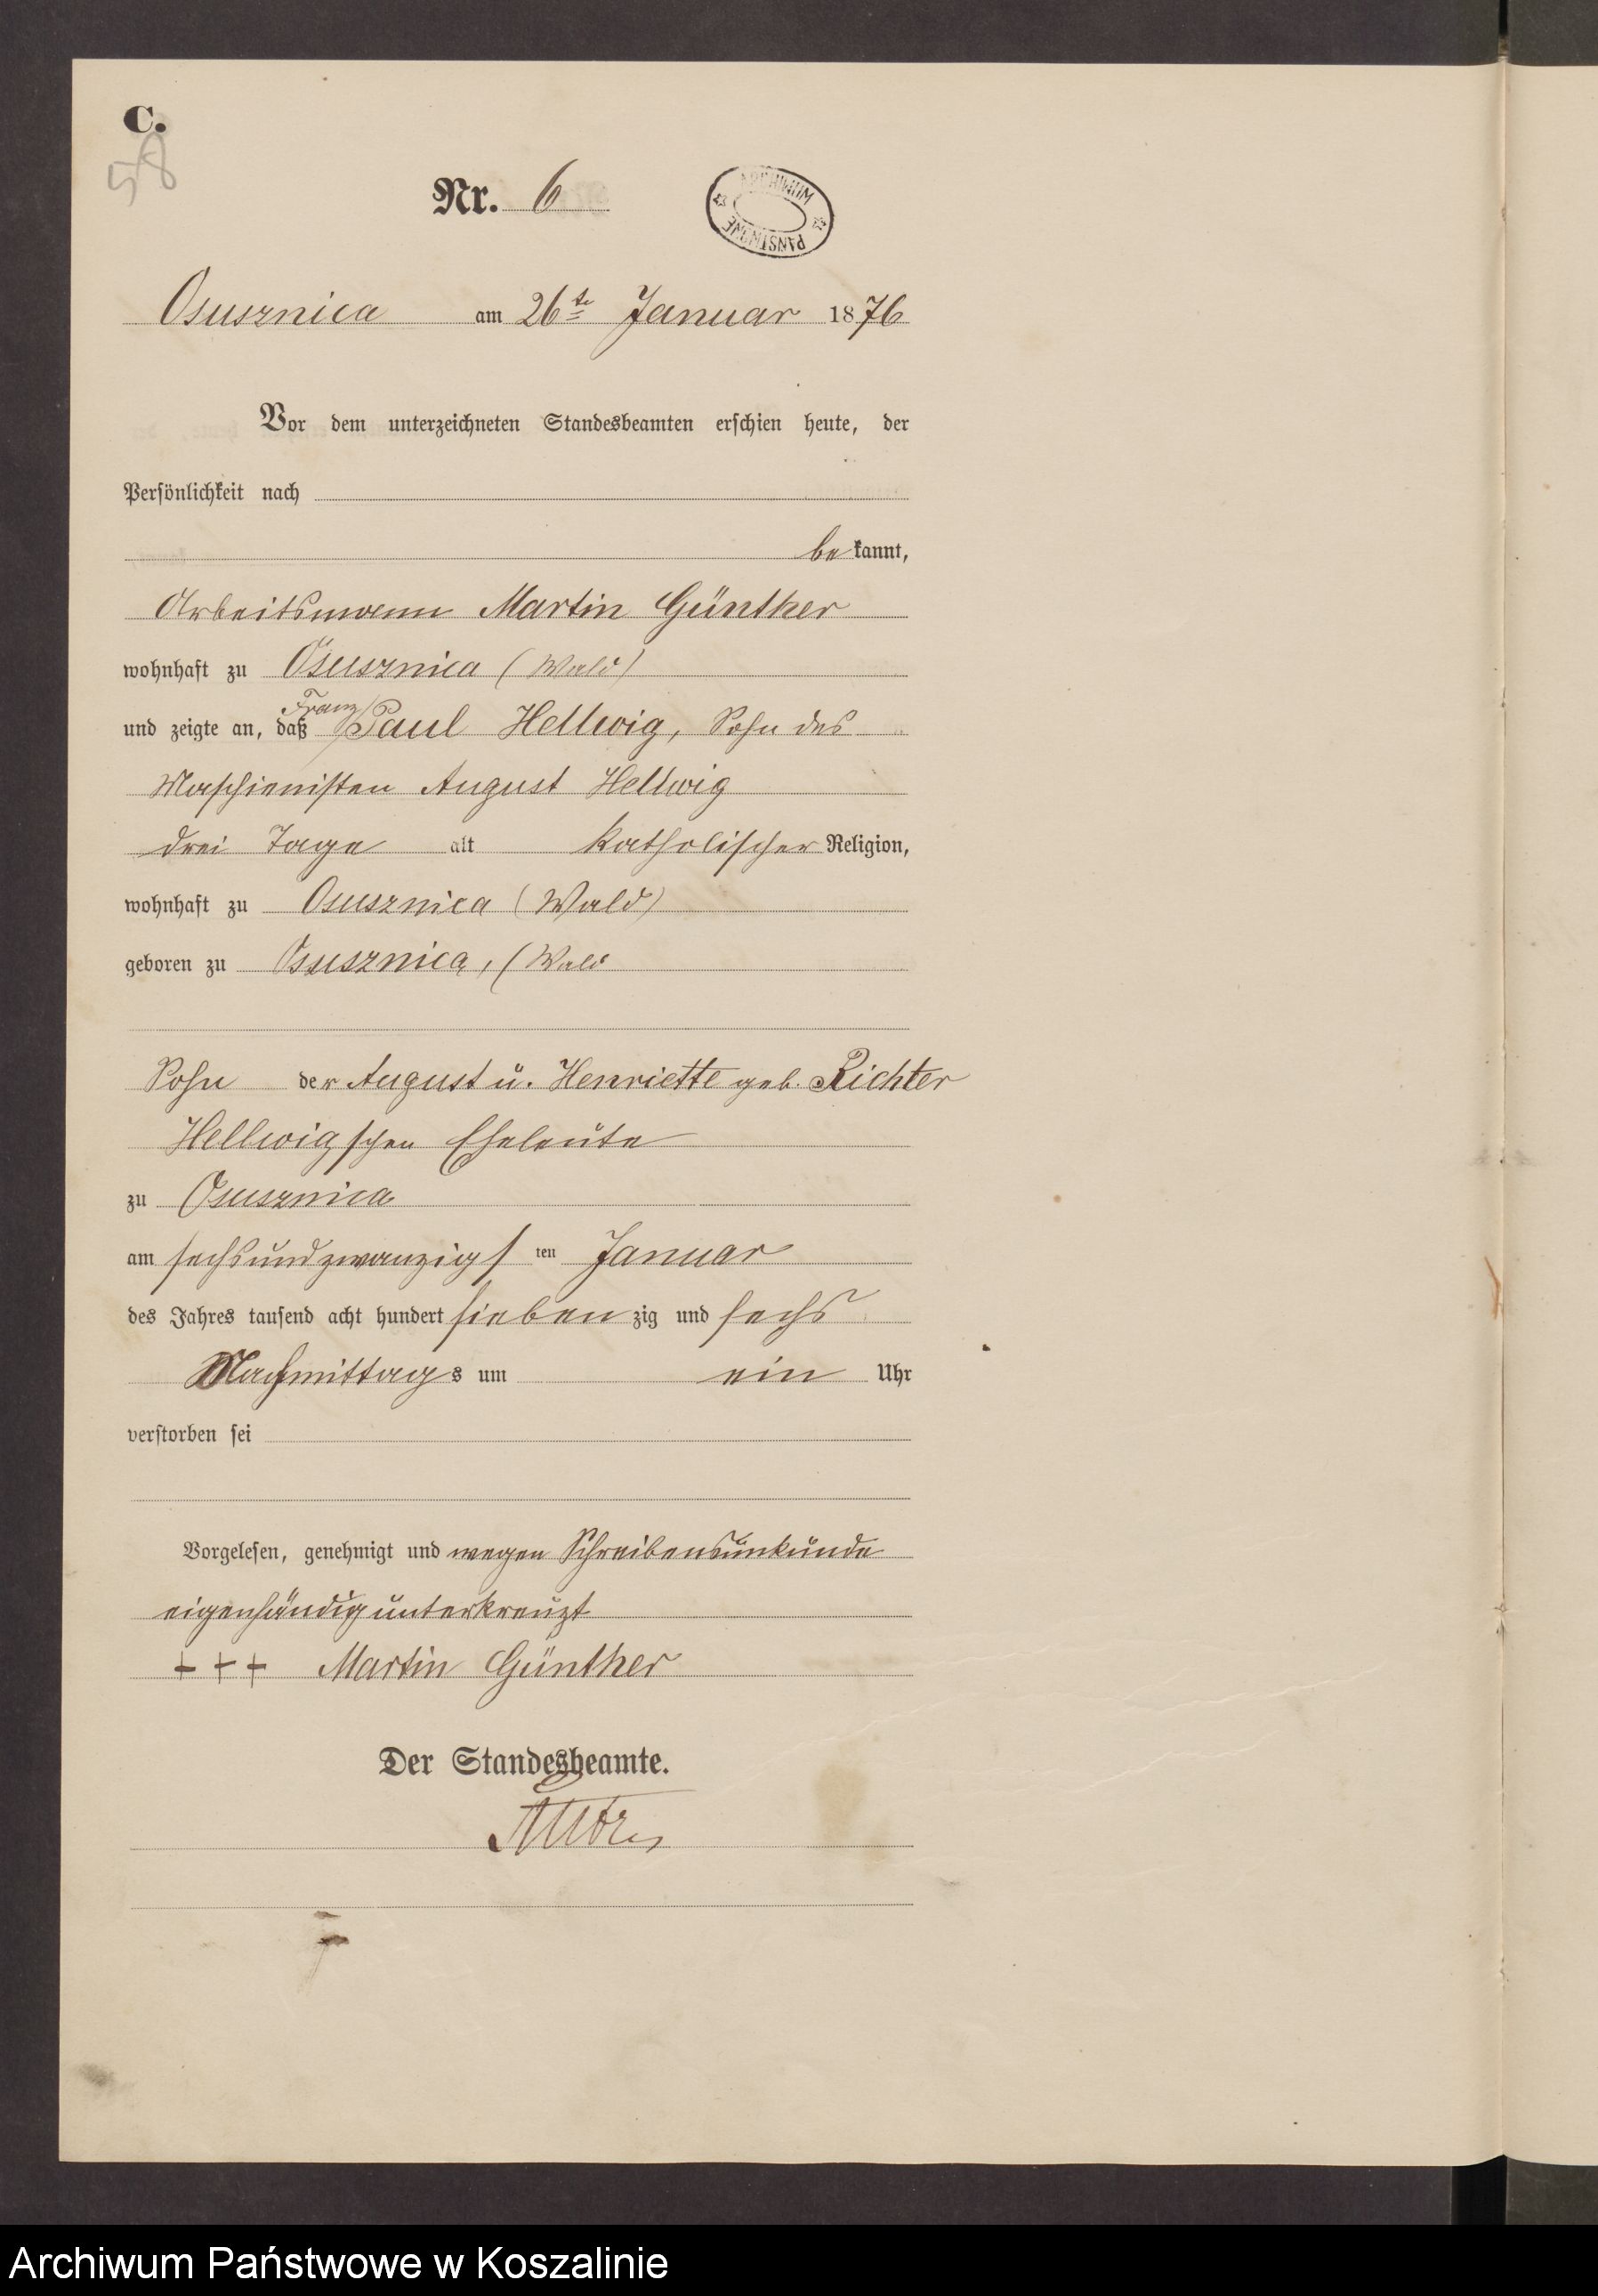 C.
58
Nr. 6
ARCHIWUM PAŃSTWOWE
Osusznica am 26te Januar 1876
Vor dem unterzeichneten Standesbeamten erschien heute, der
Persönlichkeit nach
bekannt,
Arbeitsmann Martin Günther
wohnhaft zu Osusznica (Wald)
Franz
und zeigte an, daß Paul Hellwig, Sohn des
Maschienisten August Hellwig
drei Tage alt katholischer Religion,
wohnhaft zu Osusznica (Wald)
geboren zu Osusznica, (Wald
Sohn der August u. Henriette geb. Richter
Hellwigschen Eheleute
zu Osusznica
am sechsundzwanzigsten Januar
des Jahres tausend acht hundert siebenzig und sechs
Nachmittags um ein Uhr
verstorben sei
Vorgelesen, genehmigt und wegen Schreibensunkunde
eigenhändig unterkreuzt
+ + + Martin Günther
Der Standesbeamte.
Archiwum Państwowe w Koszalinie